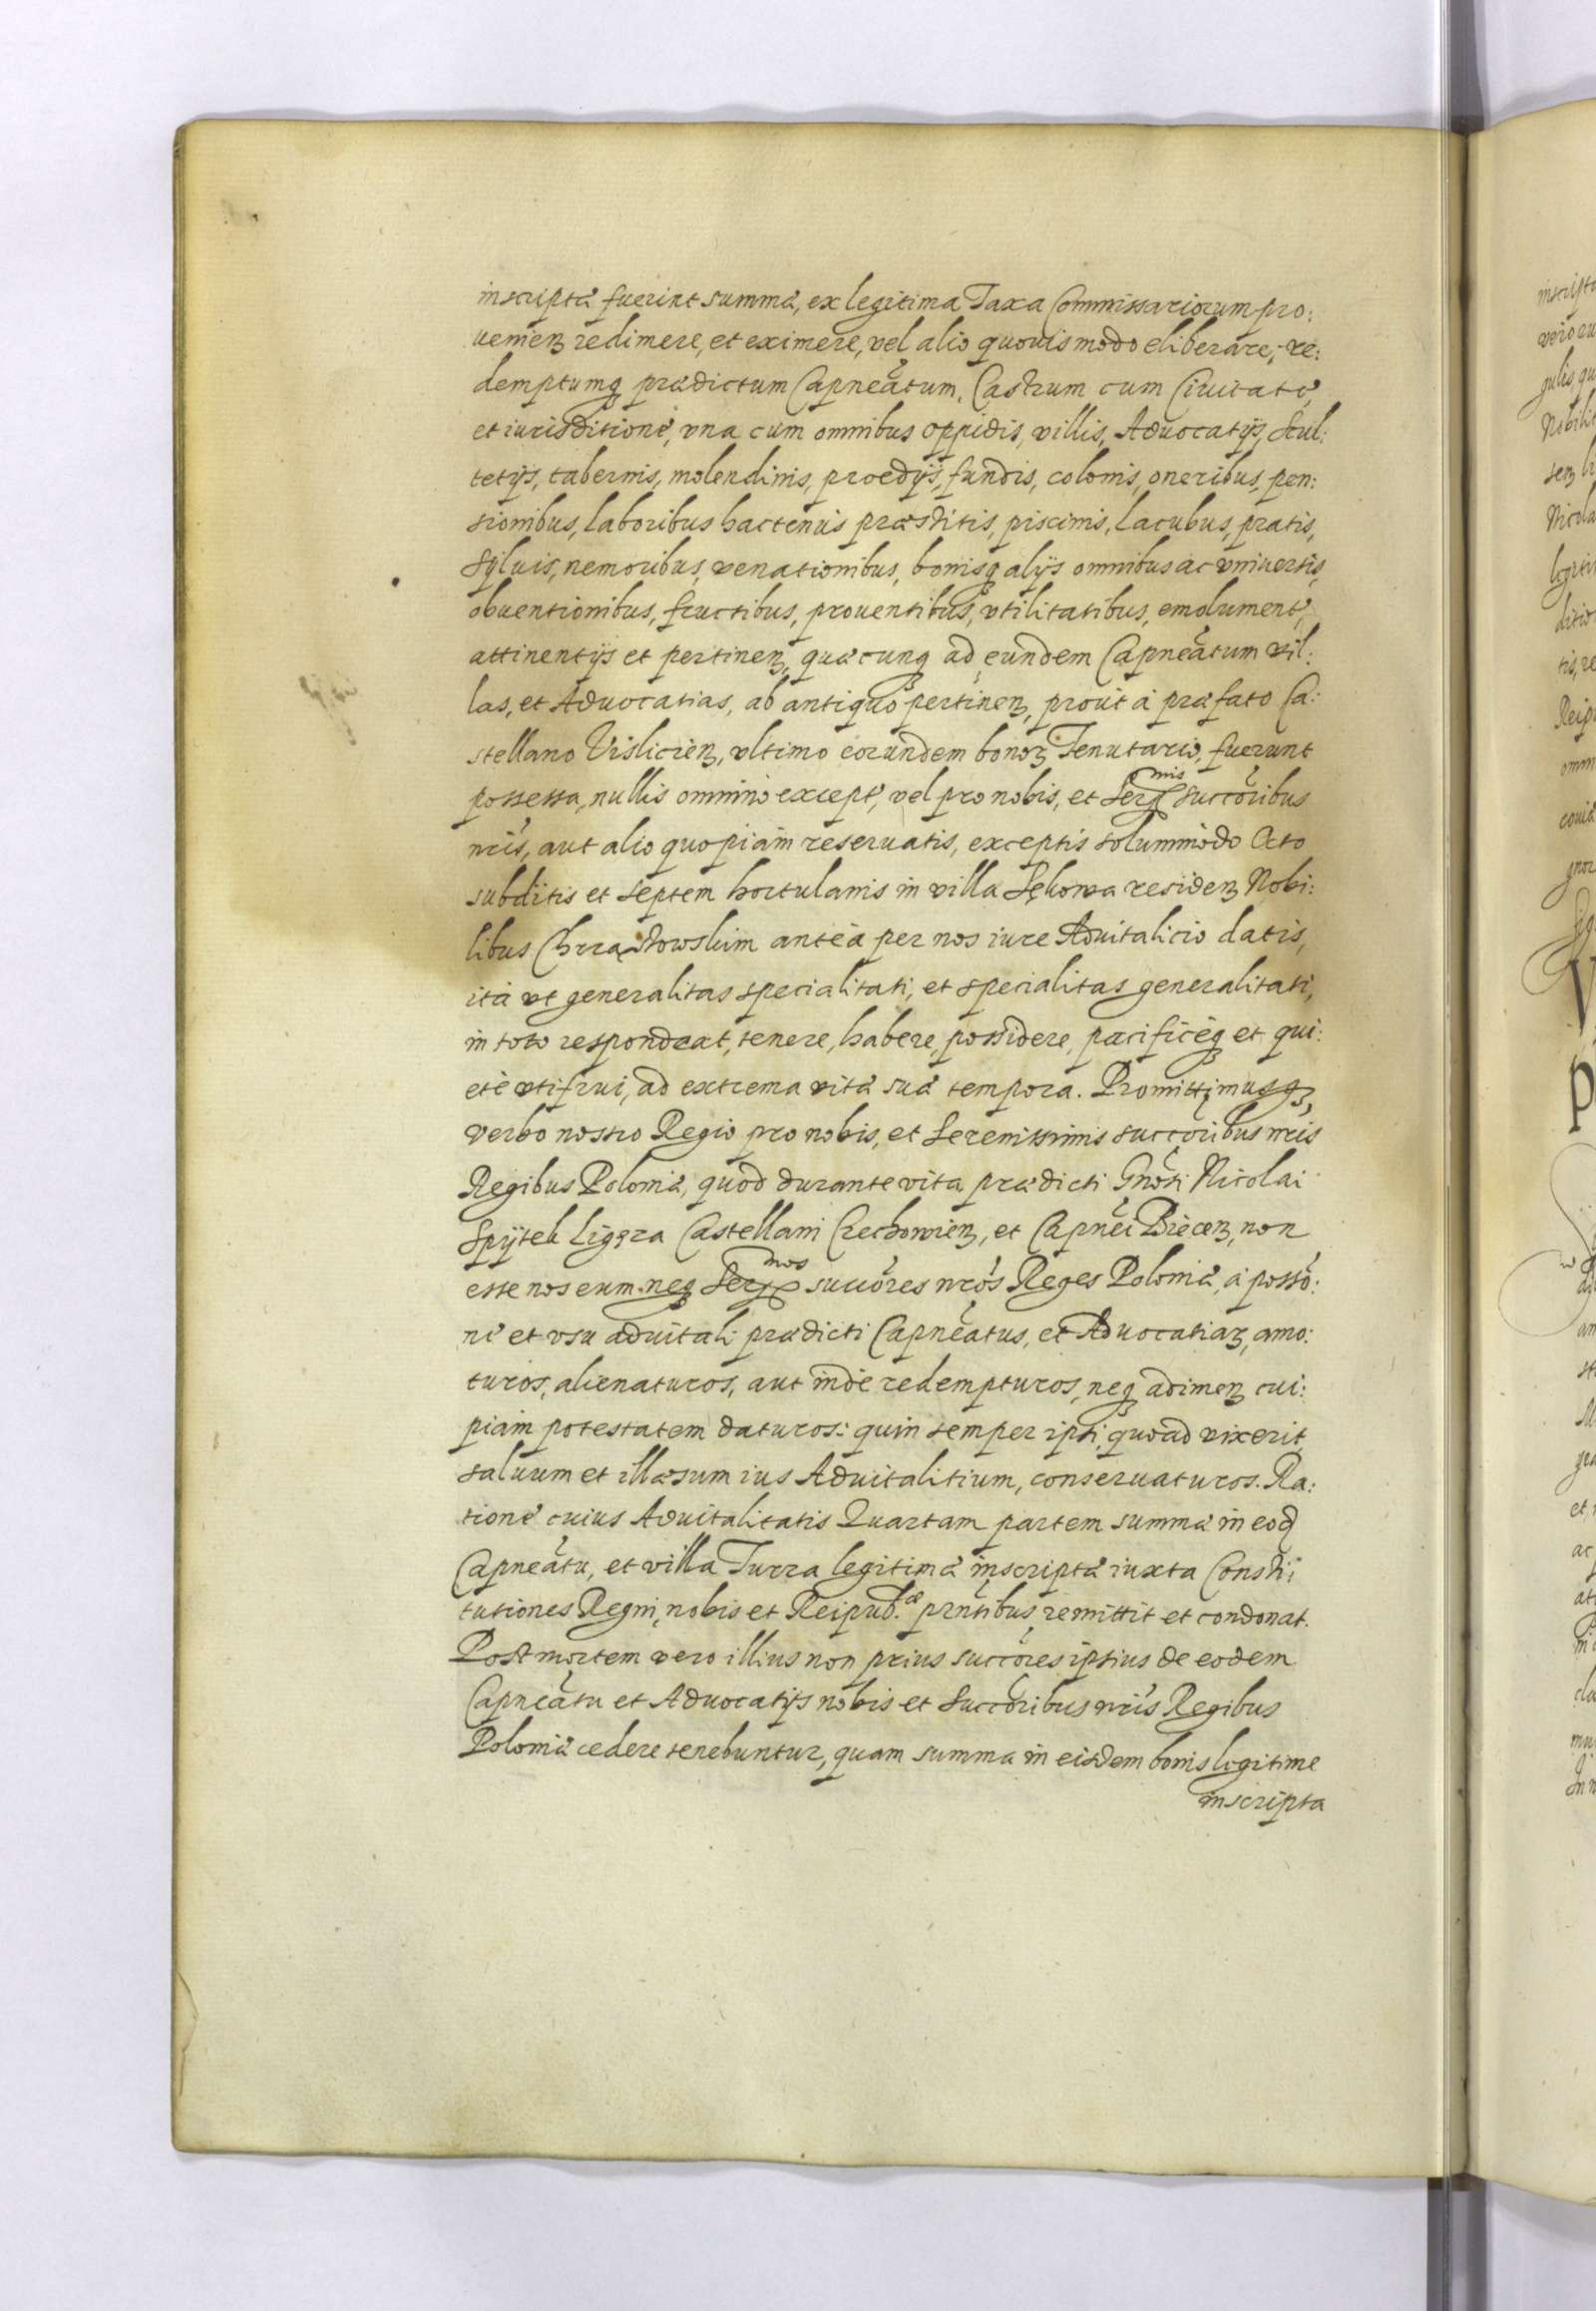 inscriptæ fuerint summæ, ex legitima Taxa Commissariorum pro:
ueniెnȝ redimere, et eximere, vel alio quouis modo eliberare, re:
demptumq prædictum Capneatum, Castrum cum Ciuitate,
et iurisditione, vna cum omnibus oppidis, villis, Aduocatijs, Scul:
tetijs, tabernis, molendinis, proedijs, fundis, colonis, oneribus, pen:
sionibus, laboribus hactenus præstitis, piscinis, lacubus, pratis,
syluis, nemoribus, venationibus, bonisq alijs omnibus ac vniuersis,
obuentionibus, fructibus, prouentibus, vtilitatibus, emolument,
attinentijs et pertinenȝ, quæcunq ad eundem Capneatum vil:
las, et Aduocatias, ab antiquo pertinenȝ, prout à præfato Ca:
stellano Vislicienȝ, vltimo eorundem bonoȝ Tenutario, fuerunt
possessa, nullis omnino except, vel pro nobis, et Sermis succoribus
nris, aut alio quopiam reseruatis, exceptis solummodo Octo
subditis et septem hortulanis in villa Sękowa residenȝ Nobi:
libus Chrząstowskim anteà per nos iure Aduitalicio datis,
ità vt generalitas specialitati, et specialitas generalitati,
in toto respondeat, tenere, habere, possidere, pacificèq et qui:
etè vtifrui, ad extrema vitæ suæ tempora. Promittimusqȝ,
verbo nostro Regio pro nobis, et Serenissimis succoribus nris
Regibus Poloniæ, quod durante vita prædicti Gnosi Nicolai
Spÿtek Ligęza Castellani Czechowienȝ, et Capnei Biecenȝ, non
esse nos eum. neq Sermos succores nros Reges Poloniæ, à posso:
ne et vsu aduitali prædicti Capneatus, et Aduocatiaȝ, amo:
turos, alienaturos, aut indè redempturos, neq adimenȝ cui:
piam potestatem daturos: quin semper ipsi, quoad vixerit
saluum et illæsum ius Aduitalitium, conseruaturos. Ra:
tione cuius Aduitalitatis Quartam partem summæ in eod
Capneatu, et villa Turza legitimæ inscriptæ iuxta Consti:
tutiones Regni, nobis et Reipub.æ prntibus remittit et condonat.
Post mortem vero illius non prius succores ipsius de eodem
Capneatu et Aduocatijs nobis et Succoribus nris Regibus
Poloniæ cedere tenebuntur, quam summa in eisdem bonis legitime
inscripta